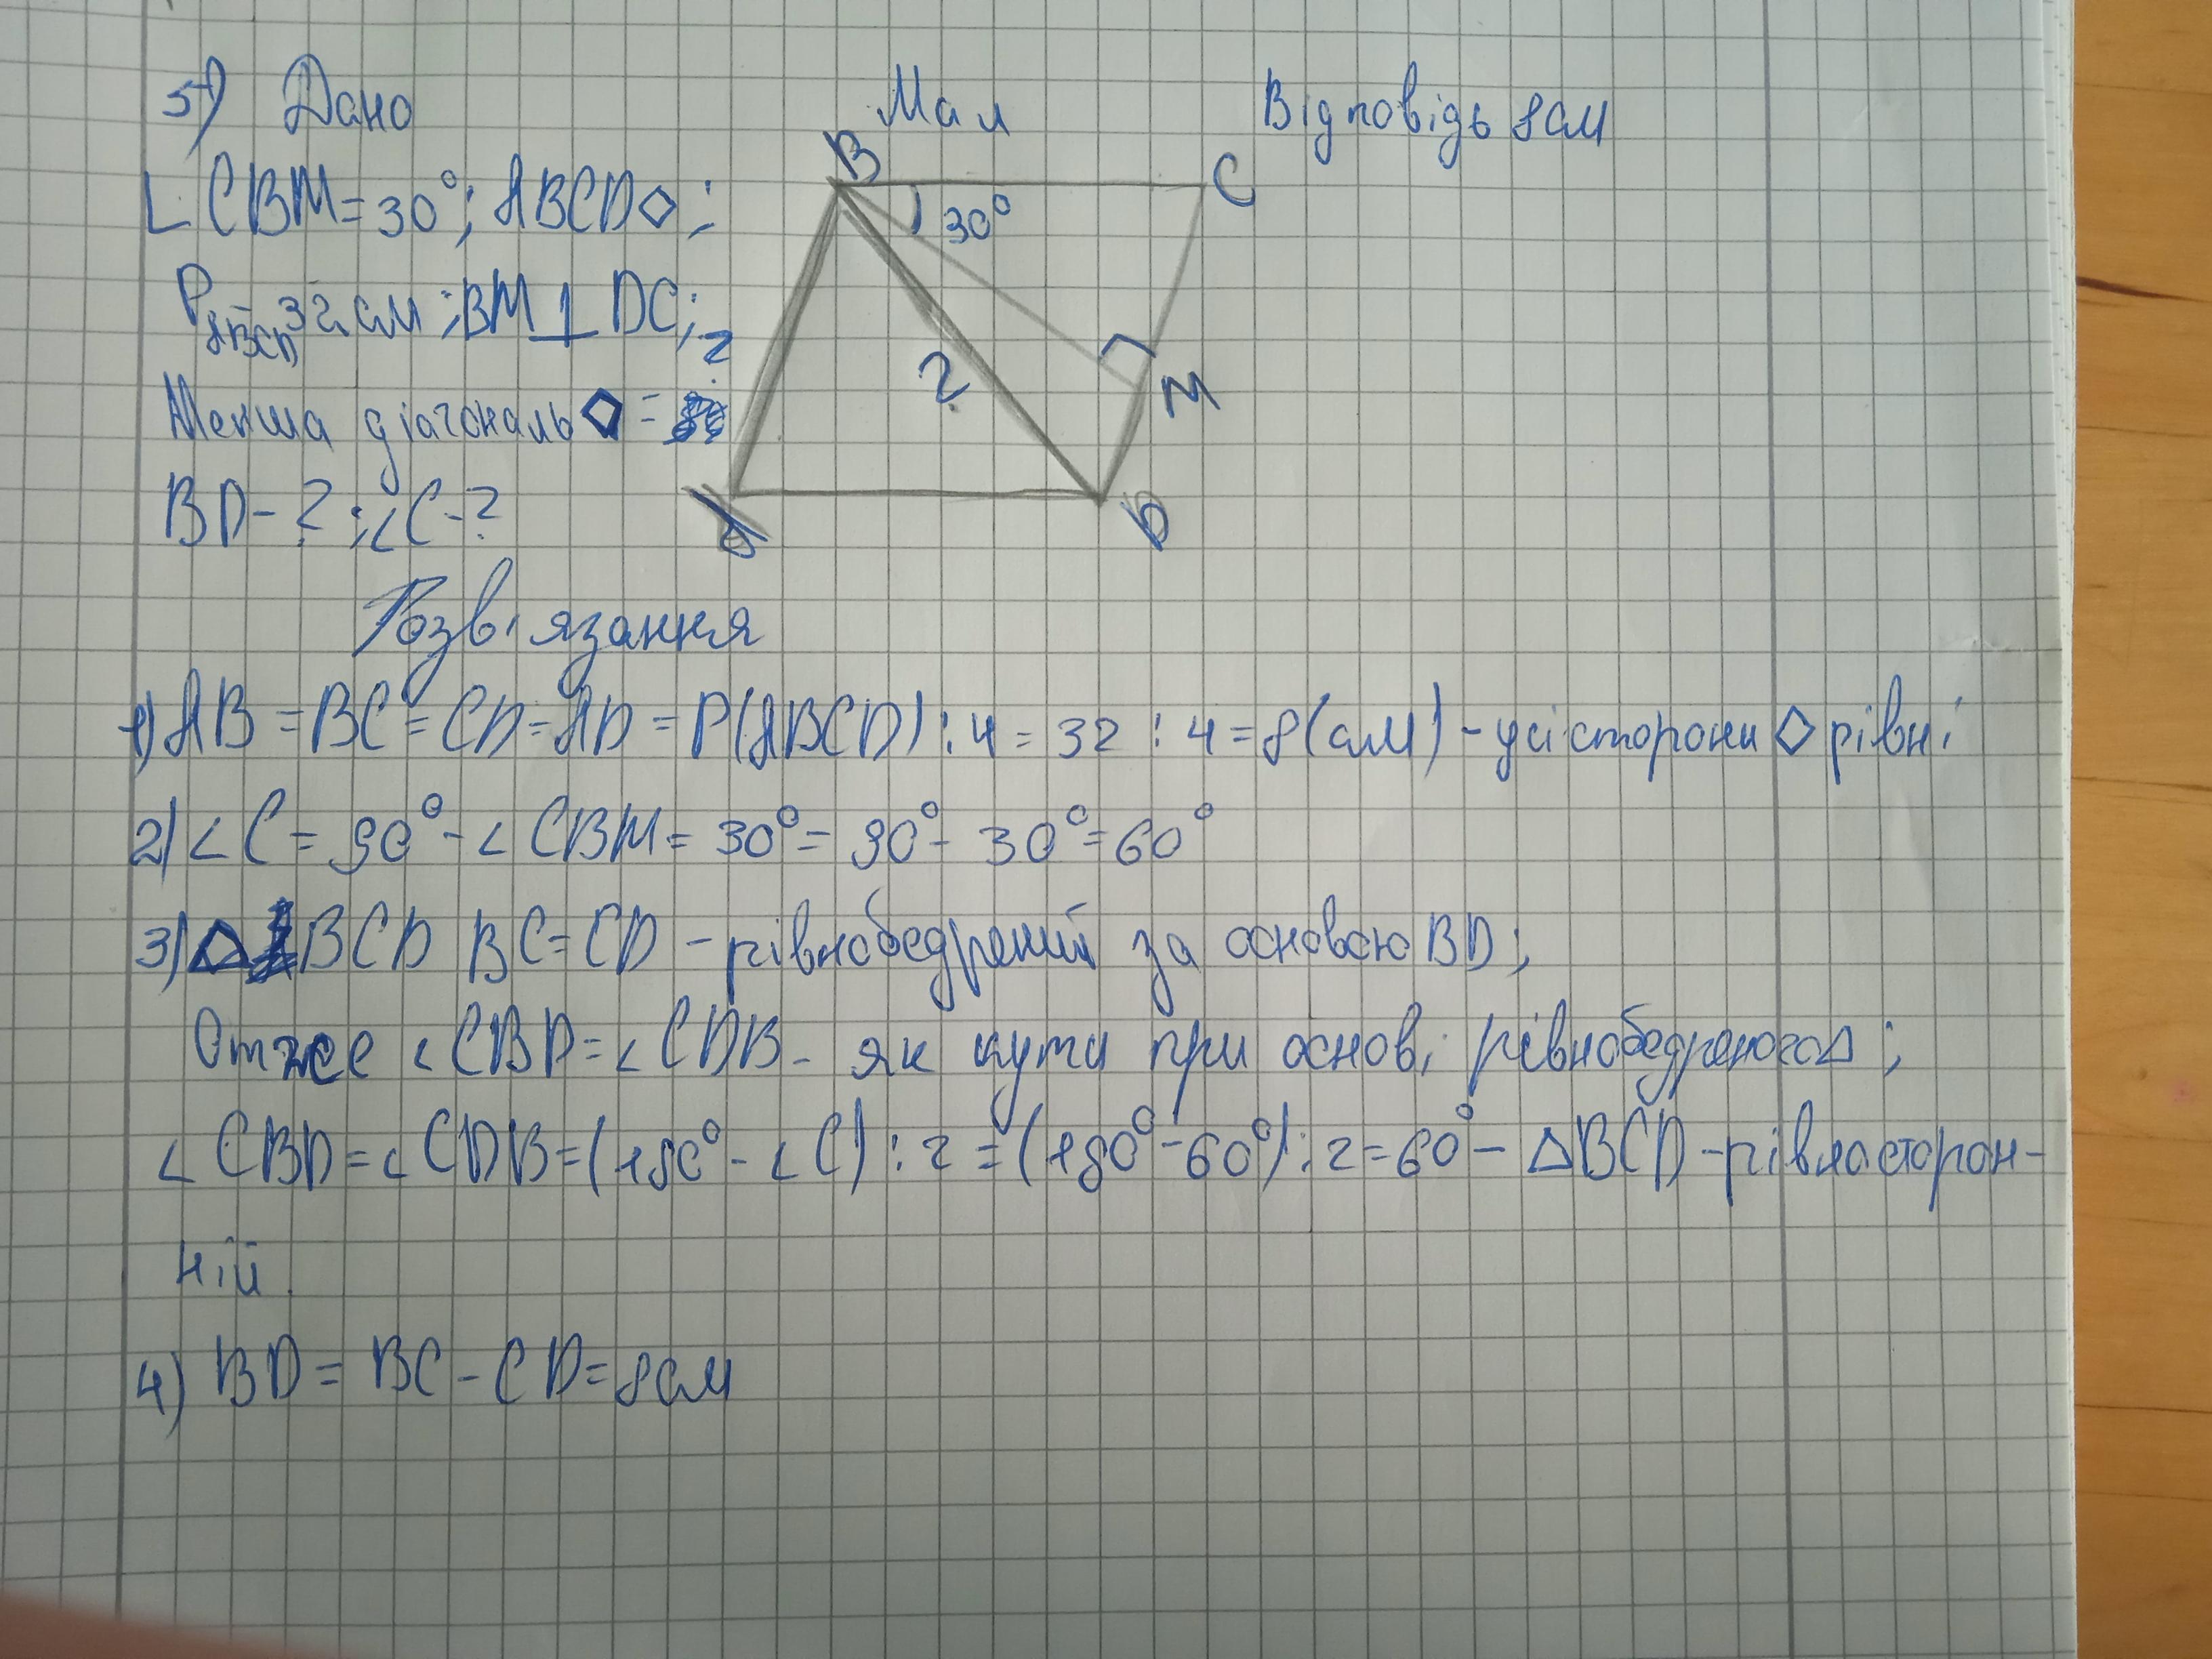 5) Дано
∟CBM=30°; ABCD◇;
P ABCD 32 см; BM⊥DC;
Менша діагональ ◇ = ?
BD-?; ∠C-?
Мал
B
C
30°
?
M
A
D
Відповідь 8см
Розв'язання
1) AB=BC=CD=AD=P(ABCD):4=32:4=8(см)-усі сторони ◇ рівні
2) ∠C=90°-∠CBM=30°=90°-30°=60°
3) △BCD BC=CD-рівнобедрений за основою BD;
Отже ∠CBD=∠CDB- як кути при основі рівнобедреного△;
∠CBD=∠CDB=(180°-∠C):2=(180°-60°):2=60°-△BCD-рівносторон-
ній.
4) BD=BC-CD=8см